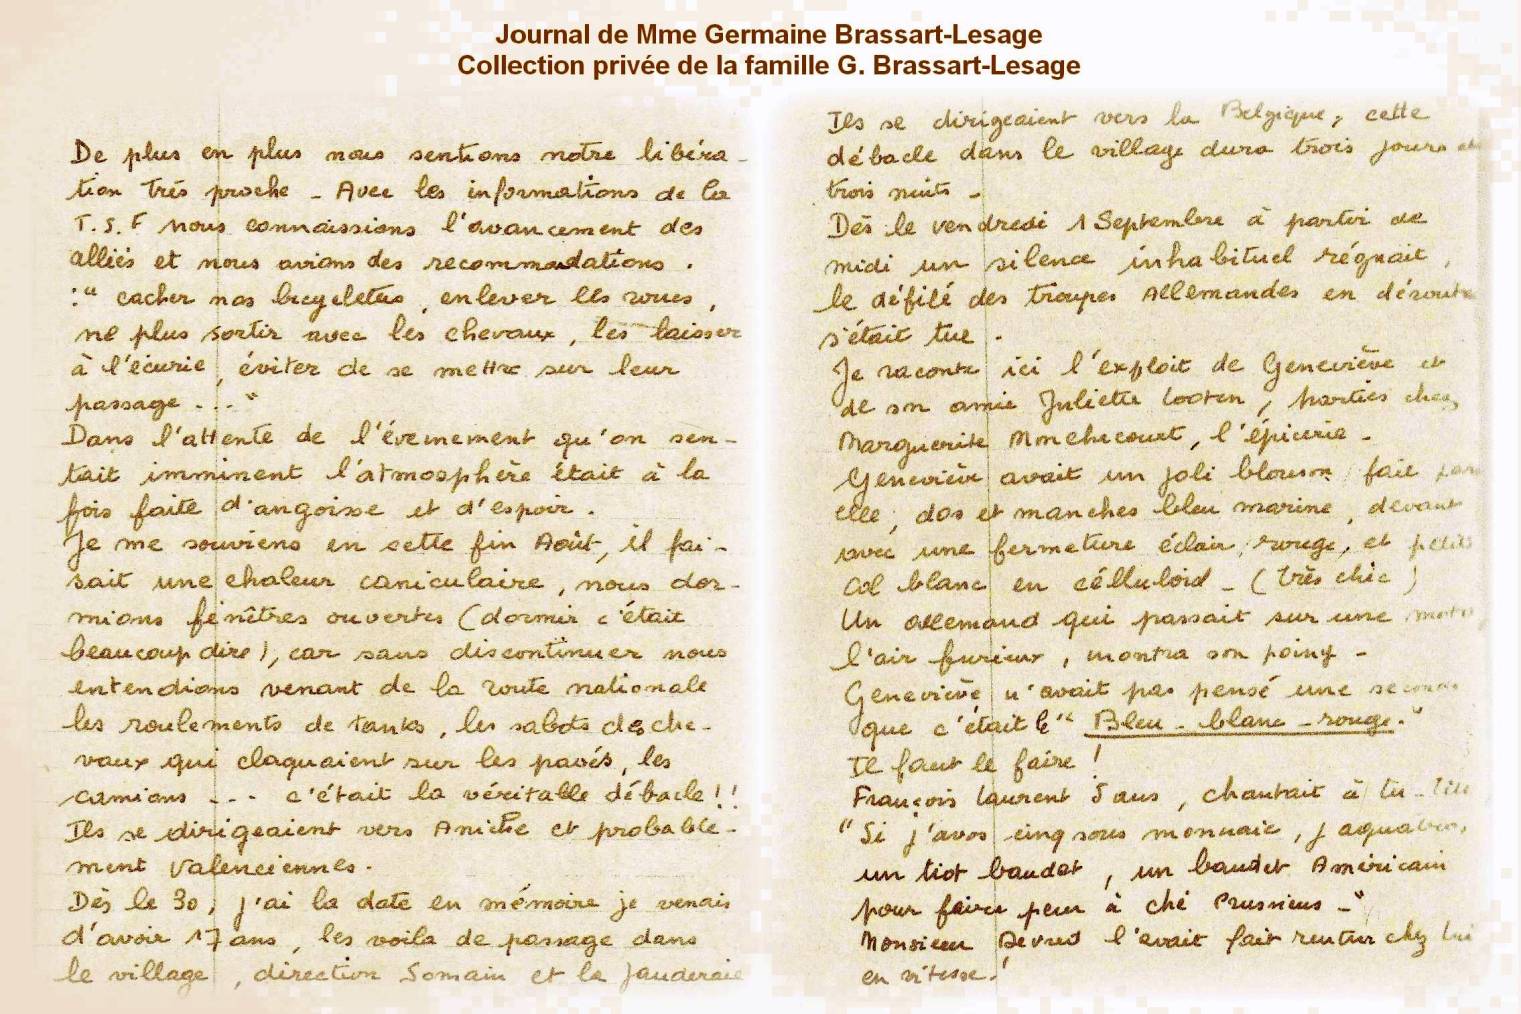 Journal de Mme Germaine Brassart-Lesage
Collection privée de la famille G. Brassart-Lesage
De plus en plus nous sentions notre libéra-
tion très proche - Avec les informations de la
T.S.F nous connaissions l'avancement des
alliés et nous avions des recommadations.
:" cacher nos bicyclettes, enlever les roues,
ne plus sortir avec les chevaux, les laisser
à l'écurie, éviter de se mettre sur leur
passage ..."
Dans l'attente de l'évènement qu'on sen-
tait imminent l'atmosphère était à la
fois faite d'angoisse et d'espoir.
Je me souviens en cette fin Août, il fai-
sait une chaleur caniculaire, nous dor-
mions fenêtres ouvertes (dormir c'était
beaucoup dire), car sans discontinuer nous
entendions venant de la route nationale
les roulements de tanks, les sabots des che-
vaux qui claquaient sur les pavés, les
camions ... c'était la véritable débacle!!
Ils se dirigeaient vers Aniche et probable-
ment Valenciennes.
Dès le 30, j'ai la date en mémoire je venais
d'avoir 17 ans, les voila de passage dans
le village, direction Somain et la
Ils se dirigeaient vers la Belgique, cette
débacle dans le village dura trois jours et
trois nuits -
Dès le vendredi 1 Septembre à partir de
midi un silence inhabituel régnait,
le défilé des troupes Allemandes en déroute
s'était tue.
Je raconte ici l'exploit de Geneviève et
de son amie Juliette Looten, parties chez
Marguerite Monchecourt, l'épicerie -
Geneviève avait un joli blouson fait par
elle, dos et manches bleu marine, devant
avec une fermeture éclair rouge, et petit
col blanc en célluloid - (très chic)
Un allemand qui passait sur une moto,
l'air furieux, montra son poing -
Geneviève n'avait pas pensé une seconde
que c'était le "Bleu - blanc - rouge."
Il faut le faire!
François Laurent 5 ans, chantait à tu-tête
"Si j'avos cinq sous monnaie, j
un tiot baudet, un baudet Américain
pour faire peur à ché Prussiens -"
Monsieur Devred l'avait fait rentrer chez lui
en vitesse!